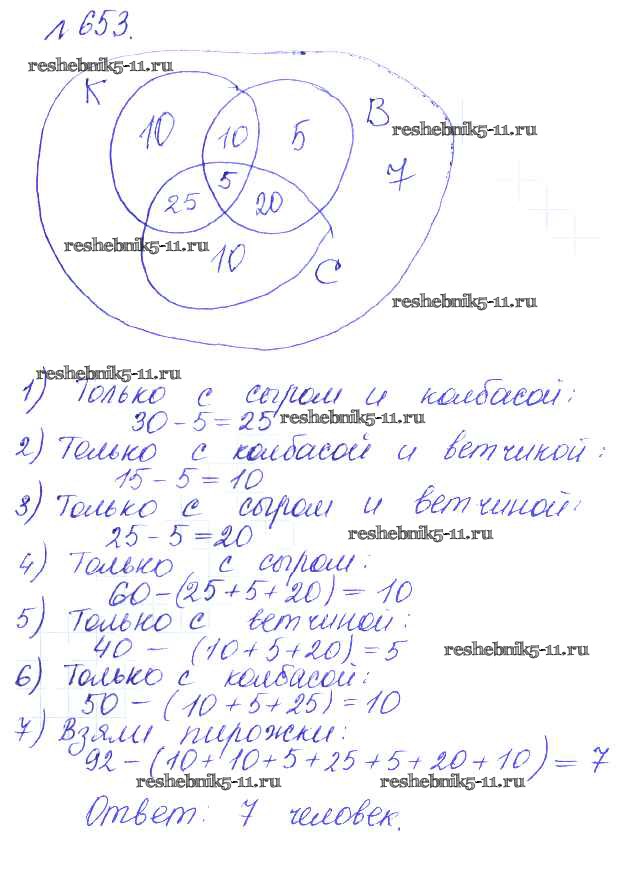 № 653.
reshebnik5-11.ru
К
10
10
5
В
reshebnik5-11.ru
7
5
25
20
reshebnik5-11.ru
10
С
reshebnik5-11.ru
reshebnik5-11.ru
1) Только с сыром и колбасой:
30 - 5 = 25 reshebnik5-11.ru
2) Только с колбасой и ветчиной:
15 - 5 = 10
3) Только с сыром и ветчиной:
25 - 5 = 20 reshebnik5-11.ru
4) Только с сыром:
60 - (25 + 5 + 20) = 10
5) Только с ветчиной:
40 - (10 + 5 + 20) = 5 reshebnik5-11.ru
6) Только с колбасой:
50 - (10 + 5 + 25) = 10
7) Взяли пирожки:
92 - (10 + 10 + 5 + 25 + 5 + 20 + 10) = 7
reshebnik5-11.ru reshebnik5-11.ru
Ответ: 7 человек.